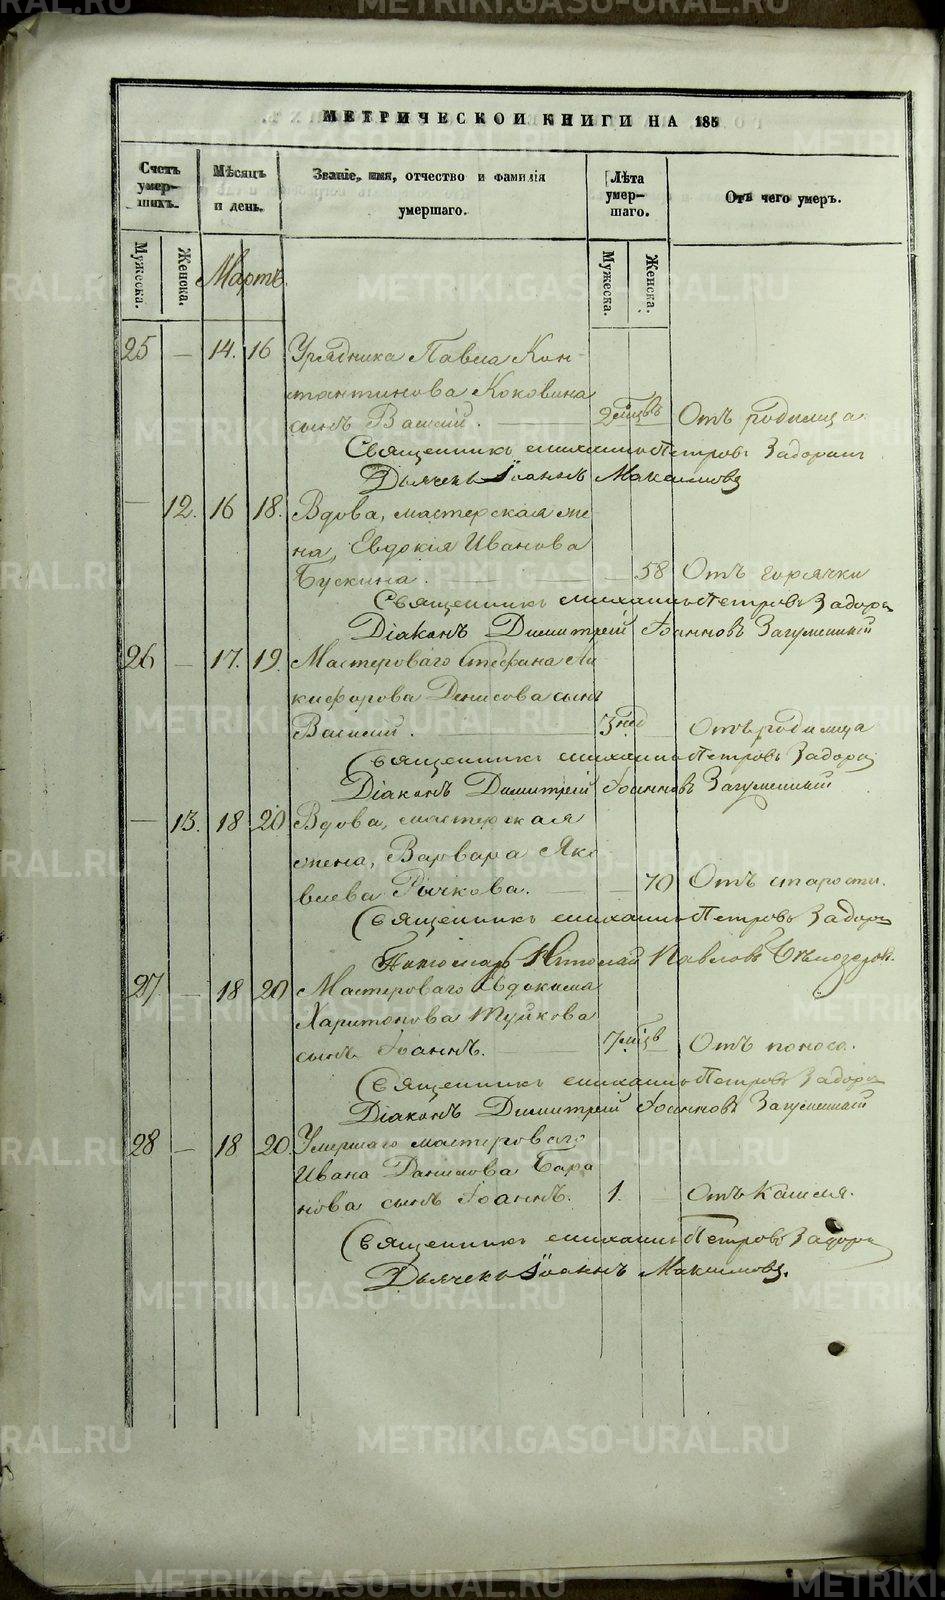 МЕТРИЧЕСКОЙ КНИГИ НА 185
Счетъ умер-шихъ.
Мѣсяцъ и день.
Званіе, имя, отчество и фамилія умершаго.
Лѣта умер-шаго.
Отъ чего умеръ.
Мужеска. Женска. Мартъ. Мужеска. Женска.
25 — 14. 16 Урядника Павла Кон-
стантинова Коковина
сынъ Василій. 2 мѣцвъ Отъ родимца.
Священникъ Михаилъ Петровъ Задорин
Дьячекъ Іоаннъ Максимовъ
— 12. 16 18. Вдова, мастерская же
на, Евдокія Иванова
Бускина. — 58 Отъ горячки
Священникъ Михаилъ Петровъ Задорин
Діаконъ Димитрій Іоанновъ Загуменный
26 — 17. 19. Мастероваго Стефана Ни
кифорова Денисова сынъ
Василій. 3 нед Отъ родимца
Священникъ Михаилъ Петровъ Задорин
Діаконъ Димитрій Іоанновъ Загуменный
— 13. 18 20 Вдова, мастерская
жена, Варвара Яко
влева Рычкова. — 70 Отъ старости.
Священникъ Михаилъ Петровъ Задорин
Пономарь Николай Павловъ Бѣлозеровъ
27 — 18 20 Мастероваго Евдокима
Харитонова
сынъ Іоаннъ. 7 мѣцв Отъ поноса.
Священникъ Михаилъ Петровъ Задорин
Діаконъ Димитрій Іоанновъ Загуменный
28 — 18 20. Умершаго мастероваго
Ивана Данилова Бара
нова сынъ Іоаннъ. 1. — Отъ кашля.
Священникъ Михаилъ Петровъ Задорин
Дьячекъ Іоаннъ Максимовъ.
METRIKI.GASO-URAL.RU